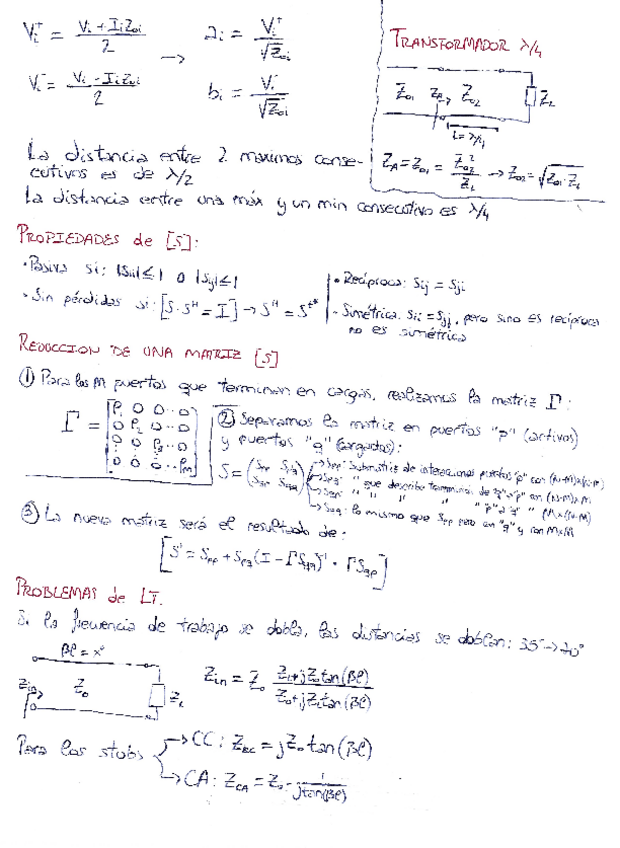 Vi⁺ = (Vi + Ii Zoi)/2 → ai = Vi⁺/√Zoi
Vi⁻ = (Vi - Ii Zoi)/2 bi = Vi⁻/√Zoi
La distancia entre 2 maximos conse-
cutivos es de λ/2
La distancia entre una máx y un min consecutivo es λ/4
TRANSFORMADOR λ/4
Z01 ZA→ Z02 ZL
L = λ/4
ZA = Z01 = Z02²/ZL → Z02 = √(Z01·ZL)
PROPIEDADES de [S]:
• Pasiva si: |Sii| ≤ 1 o |Sij| ≤ 1
• Sin pérdidas si: [S·Sᴴ = I] → Sᴴ = Sᵗ*
• Recíproca: Sij = Sji
- Simétrica: Sii = Sjj, pero si no es recíproca
no es simétrica
REDUCCION DE UNA MATRIZ [S]
① Para los M puertos que terminan en cargas, realizamos la matriz Γ:
Γ = [ρ1 0 0 ·· 0
0 ρ2 0 ·· 0
0 0 ρ3 ·· 0
0 0 0 ·· ρm]
② Separamos la matriz en puertos "p" (activos)
y puertos "q" (cargados):
S = (Spp Spq
Sqp Sqq)
→ Spp: Submatriz de puertos "p" con (N-M)x(N-M)
→ Spq: " que describe de "q" a "p" con (N-M)xM
→ Sqp: " " " "p" a "q" " Mx(N-M)
→ Sqq: lo mismo que Spp pero con "q" y con MxM
③ La nueva matriz será el resultado de:
[S' = Spp + Spq(I - ΓSqq)⁻¹ · ΓSqp]
PROBLEMAS de LT.
Si la frecuencia de trabajo se dobla, las distancias se doblan: 35° → 70°
βl = x°
Zin Z0 ZL
Zin = Z0 (ZL + jZ0 tan(βl))/(Z0 + jZL tan(βl))
Para los stubs → CC: Zcc = jZ0 tan(βl)
→ CA: ZCA = Z0 · 1/(j tan(βl))